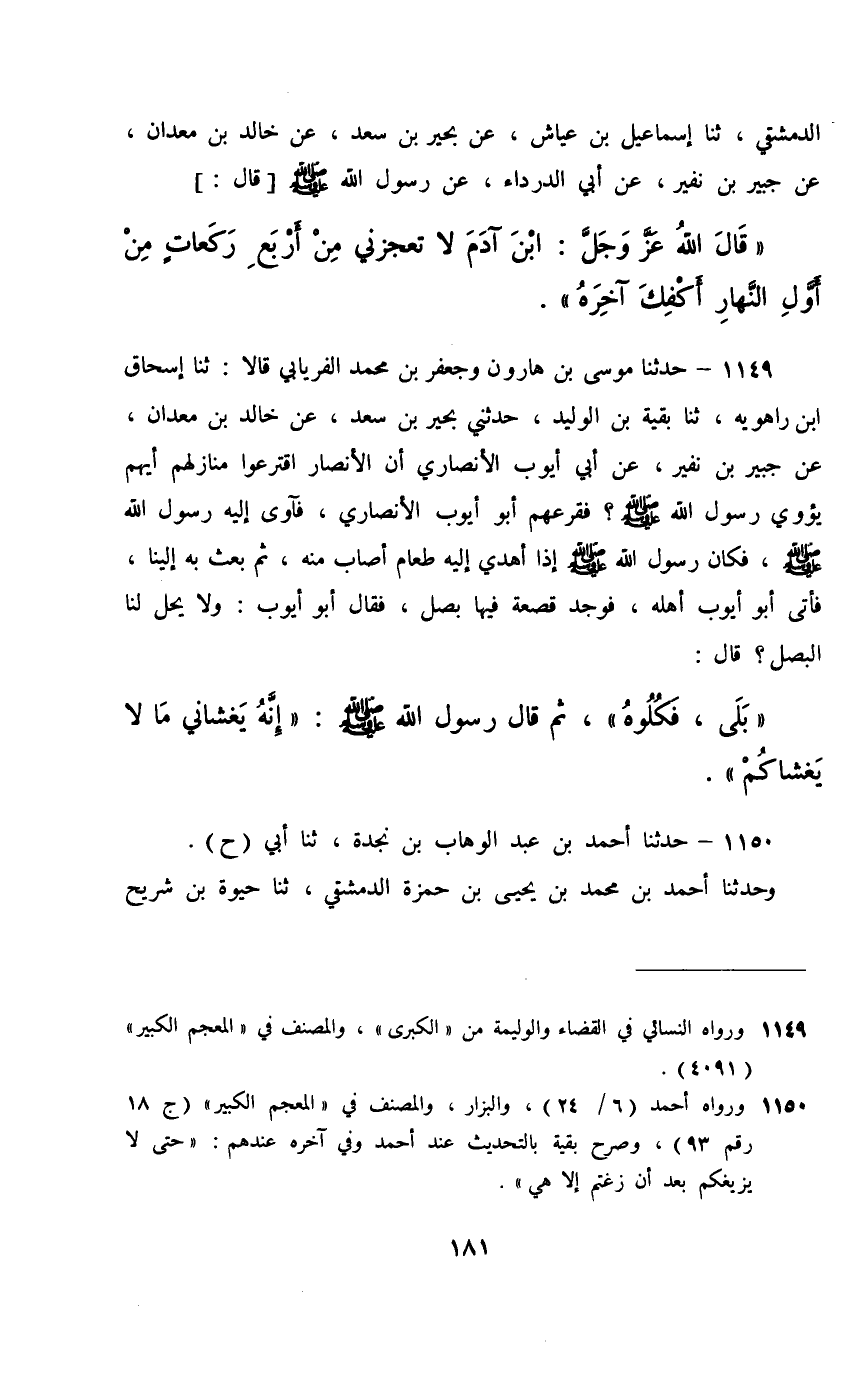 الدمشقي ، ثنا إسماعيل بن عياش ، عن بحير بن سعد ، عن خالد بن معدان ،
عن جبير بن نفير ، عن أبي الدرداء ، عن رسول الله ﷺ [ قال : ]
« قَالَ اللهُ عَزَّ وَجَلَّ : ابْنَ آدَمَ لا تعجزني مِنْ أَرْبَعِ رَكَعاتٍ مِنْ
أَوَّلِ النَّهارِ أَكْفِكَ آخِرَهُ » .
١١٤٩ – حدثنا موسى بن هارون وجعفر بن محمد الفريابي قالا : ثنا إسحاق
ابن راهويه ، ثنا بقية بن الوليد ، حدثني بحير بن سعد ، عن خالد بن معدان ،
عن جبير بن نفير ، عن أبي أيوب الأنصاري أن الأنصار اقترعوا منازلهم أيهم
يؤوي رسول الله ﷺ ؟ فقرعهم أبو أيوب الأنصاري ، فآوى إليه رسول الله
ﷺ ، فكان رسول الله ﷺ إذا أهدي إليه طعام أصاب منه ، ثم بعث به إلينا ،
فأتى أبو أيوب أهله ، فوجد قصعة فيها بصل ، فقال أبو أيوب : ولا يحل لنا
البصل ؟ قال :
« بَلَى ، فَكُلُوهُ » ، ثم قال رسول الله ﷺ : « إِنَّهُ يَغشاني مَا لا
يَغشاكُمْ » .
١١٥٠ – حدثنا أحمد بن عبد الوهاب بن نجدة ، ثنا أبي (ح) .
وحدثنا أحمد بن محمد بن يحيى بن حمزة الدمشقي ، ثنا حيوة بن شريح
١١٤٩ ورواه النسائي في القضاء والوليمة من « الكبرى » ، والمصنف في « المعجم الكبير »
(٤٠٩١) .
١١٥٠ ورواه أحمد (٦ / ٢٤) ، والبزار ، والمصنف في « المعجم الكبير » (ج ١٨
رقم ٩٣) ، وصرح بقية بالتحديث عند أحمد وفي آخره عندهم : « حتى لا
يزيغكم بعد أن زغتم إلا هي » .
١٨١